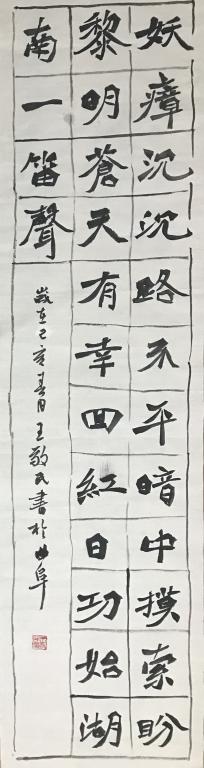 妖瘴沉沉路不平暗中摸索盼
黎明蒼天有幸回紅日功始湖
南一笛聲
歲在己亥春月王敬民書於曲阜